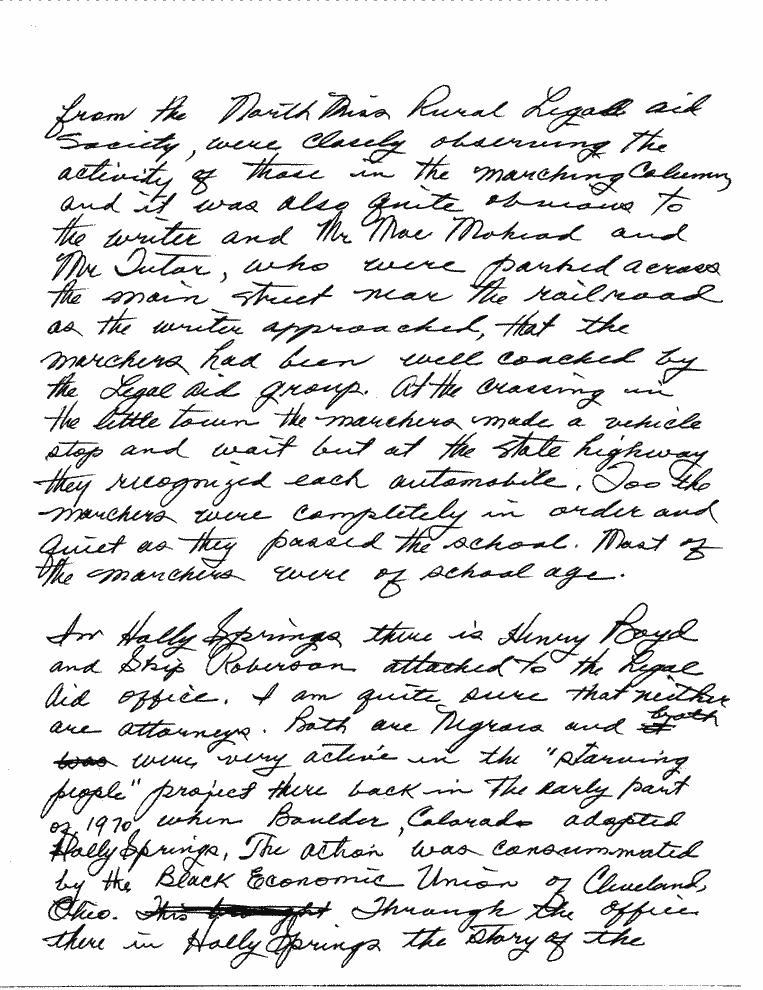 from the North Miss Rural Legal aid
Society, were closely observing the
activity of those in the marching Column,
and it was also quite obvious to
the writer and Mr Mac and
Mr Tutor, who were parked across
the main street near the railroad
as the writer approached, that the
marchers had been well coached by
the Legal Aid group. At the crossing in
the little town the marchers made a vehicle
stop and wait but at the state highway
they recognized each automobile. Too the
marchers were completely in order and
quiet as they passed the school. Most of
the marchers were of school age.
In Holly Springs there is Henry Boyd
and Skip Roberson attached to the Legal
Aid office. I am quite sure that neither
are attorneys. Both are Negroes and both
were very active in the "starving
people" project there back in the early part
of 1970 when Boulder, Colorado adopted
Holly Springs. The action was consummated
by the Black Economic Union of Cleveland,
Ohio. This brought Through the office
there in Holly Springs the story of the